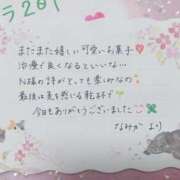 ラ201
またまた嬉しい可愛いお菓子
治療で良くなるといいな…
N様の詩がとても楽しみなの
最後は美を感じる乾杯で
今日もありがとうございました
なみか より